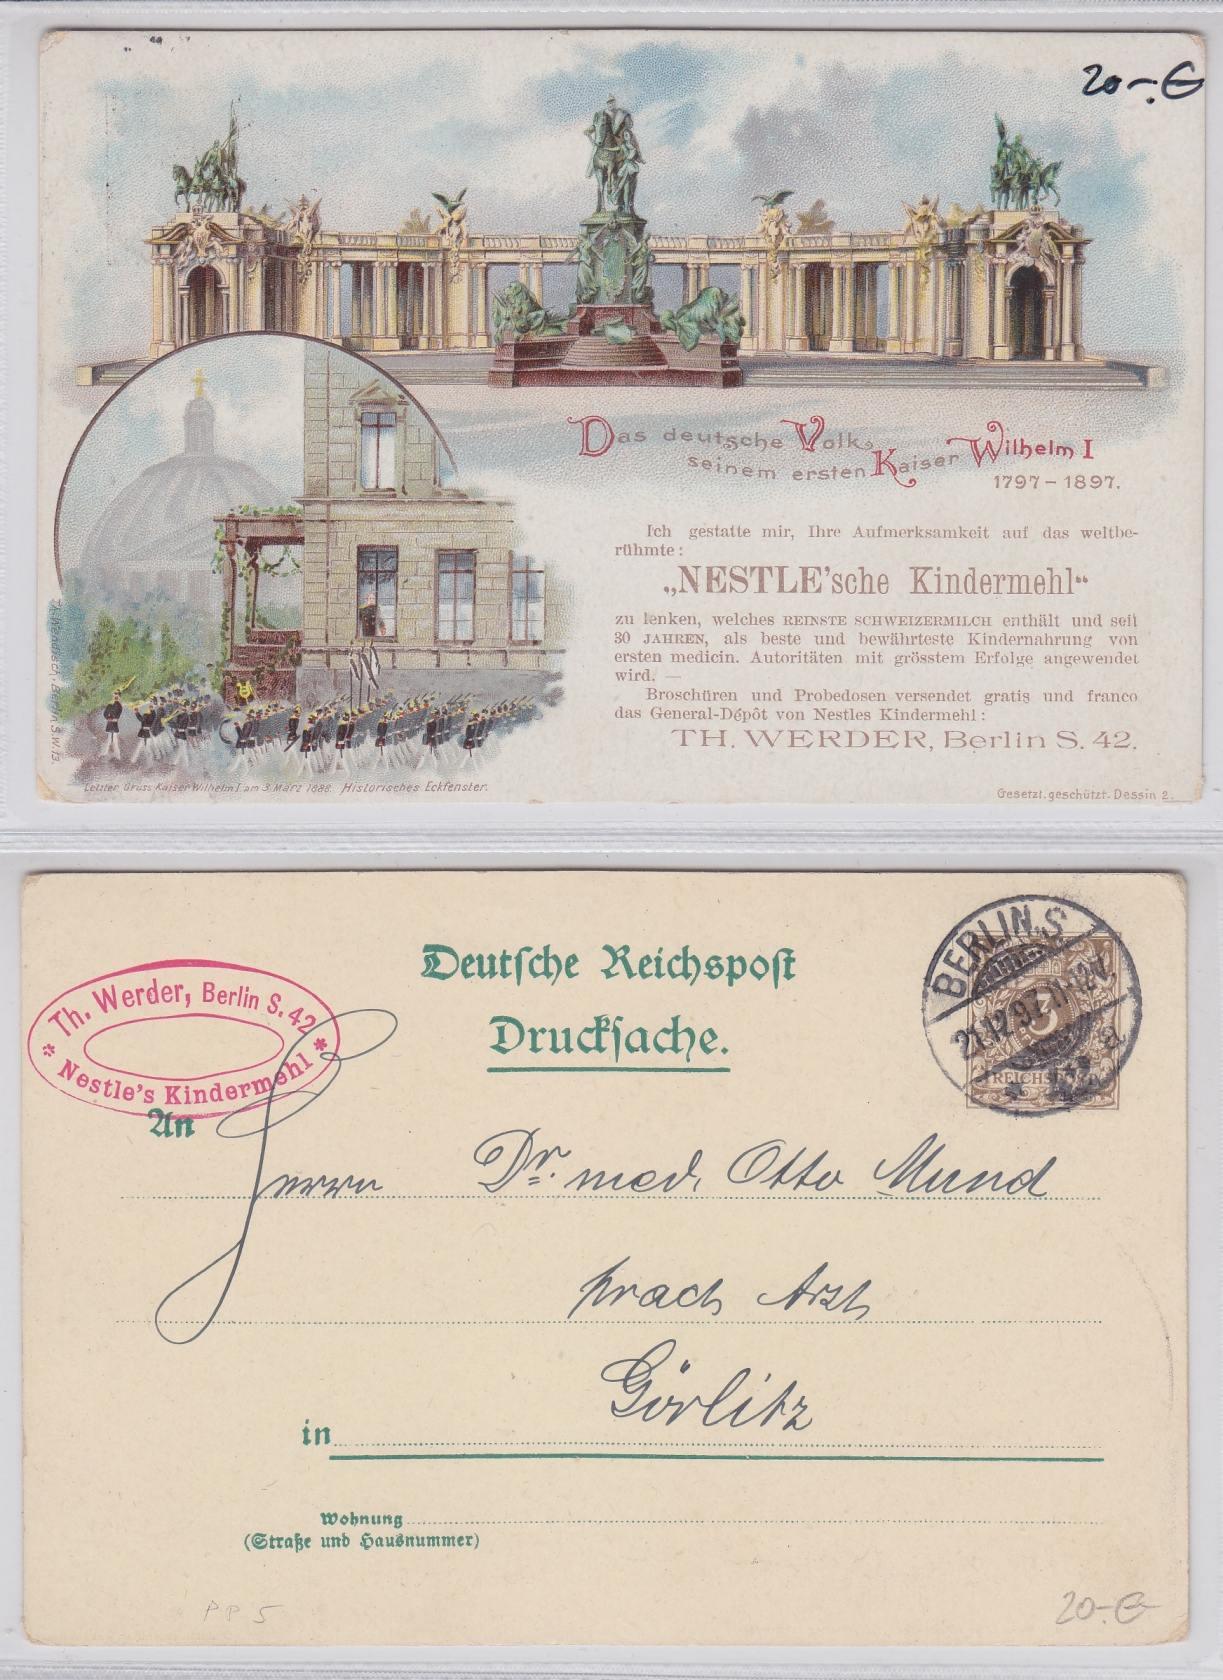 20-.€
Das deutsche Volk
seinem ersten Kaiser Wilhelm I
1797 - 1897.
Ich gestatte mir, Ihre Aufmerksamkeit auf das weltbe-
rühmte:
„NESTLE'sche Kindermehl“
zu lenken, welches REINSTE SCHWEIZERMILCH enthält und seit
30 JAHREN, als beste und bewährteste Kindernahrung von
ersten medicin. Autoritäten mit grösstem Erfolge angewendet
wird. —
Broschüren und Probedosen versendet gratis und franco
das General-Dépôt von Nestles Kindermehl:
TH. WERDER, Berlin S. 42.
Berlin S.W.13.
Letzter Gruss Kaiser Wilhelm I. am 3. März 1888. Historisches Eckfenster.
Gesetzl. geschützt. Dessin 2.
Deutsche Reichspost
Drucksache.
Th. Werder, Berlin S. 42
* Nestle's Kindermehl *
BERLIN,S
21.12.97.11-12V.
a
3
REICHSPOST
An
Herrn Dr. med. Otto Mund
pract Arzt
in Görlitz
Wohnung
(Straße und Hausnummer)
PP 5
20-.€